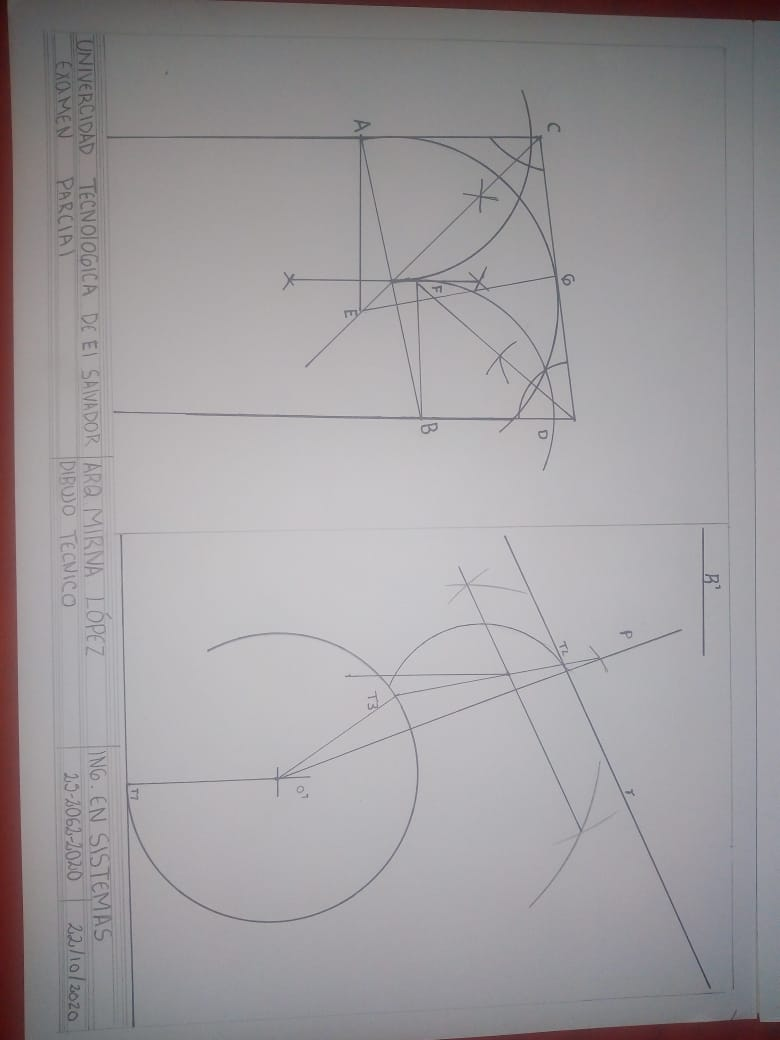 C
A
G
F
E
D
B
R1
P
T2
r
T3
O1
T1
UNIVERCIDAD TECNOLOGICA DE El SALVADOR ARQ MIRNA LÓPEZ ING. EN SISTEMAS
EXAMEN PARCIAl DIBUJO TECNICO 29-2062-2020 22/10/2020